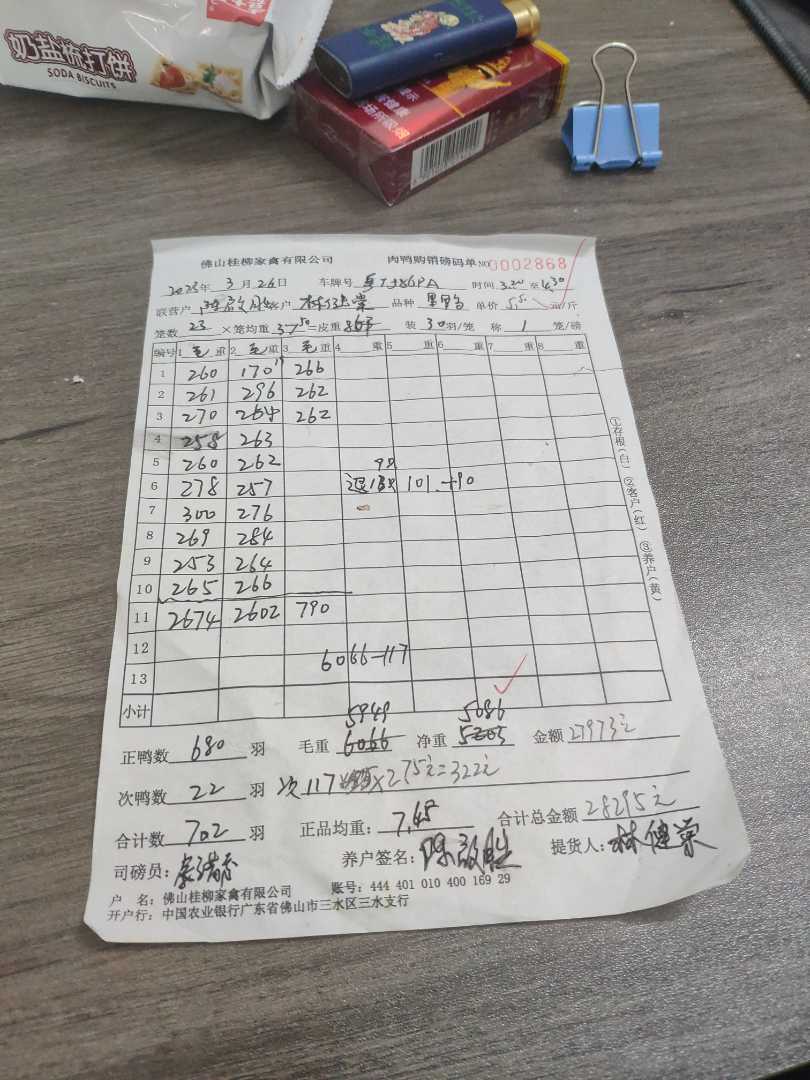 奶盐梳打饼
SODA BISCUITS
佛山桂柳家禽有限公司 肉鸭购销磅码单 NO 0002868
2023年 3月26日 车牌号 时间 3.20 至 4.30
联营户 客户 林健荣 品种 单价 5.5 元/斤
笼数 23 ×笼均重 37.50 =皮重 装 30 羽/笼 称 1 笼/磅
编号 1 毛 重 2 毛 重 3 毛 重 4 重 5 重 6 重 7 重 8 重
1 260 170 266
2 261 296 262
3 270 264 262
4 258 263
5 260 262
6 278 257 101 90
7 300 276
8 269 284
9 253 264
10 265 266
11 2674 2602 790
12 6066-117
13
小计 5949 5086
正鸭数 680 羽 毛重 6066 净重 金额 27973元
次鸭数 22 羽 次 117 ×2.75元=322元
合计数 702 羽 正品均重: 7.48 合计总金额 28295元
司磅员: 养户签名: 提货人: 林健荣
户 名: 佛山桂柳家禽有限公司 账号: 444 401 010 400 169 29
开户行: 中国农业银行广东省佛山市三水区三水支行
①存根(白) ②客户(红) ③养户(黄)